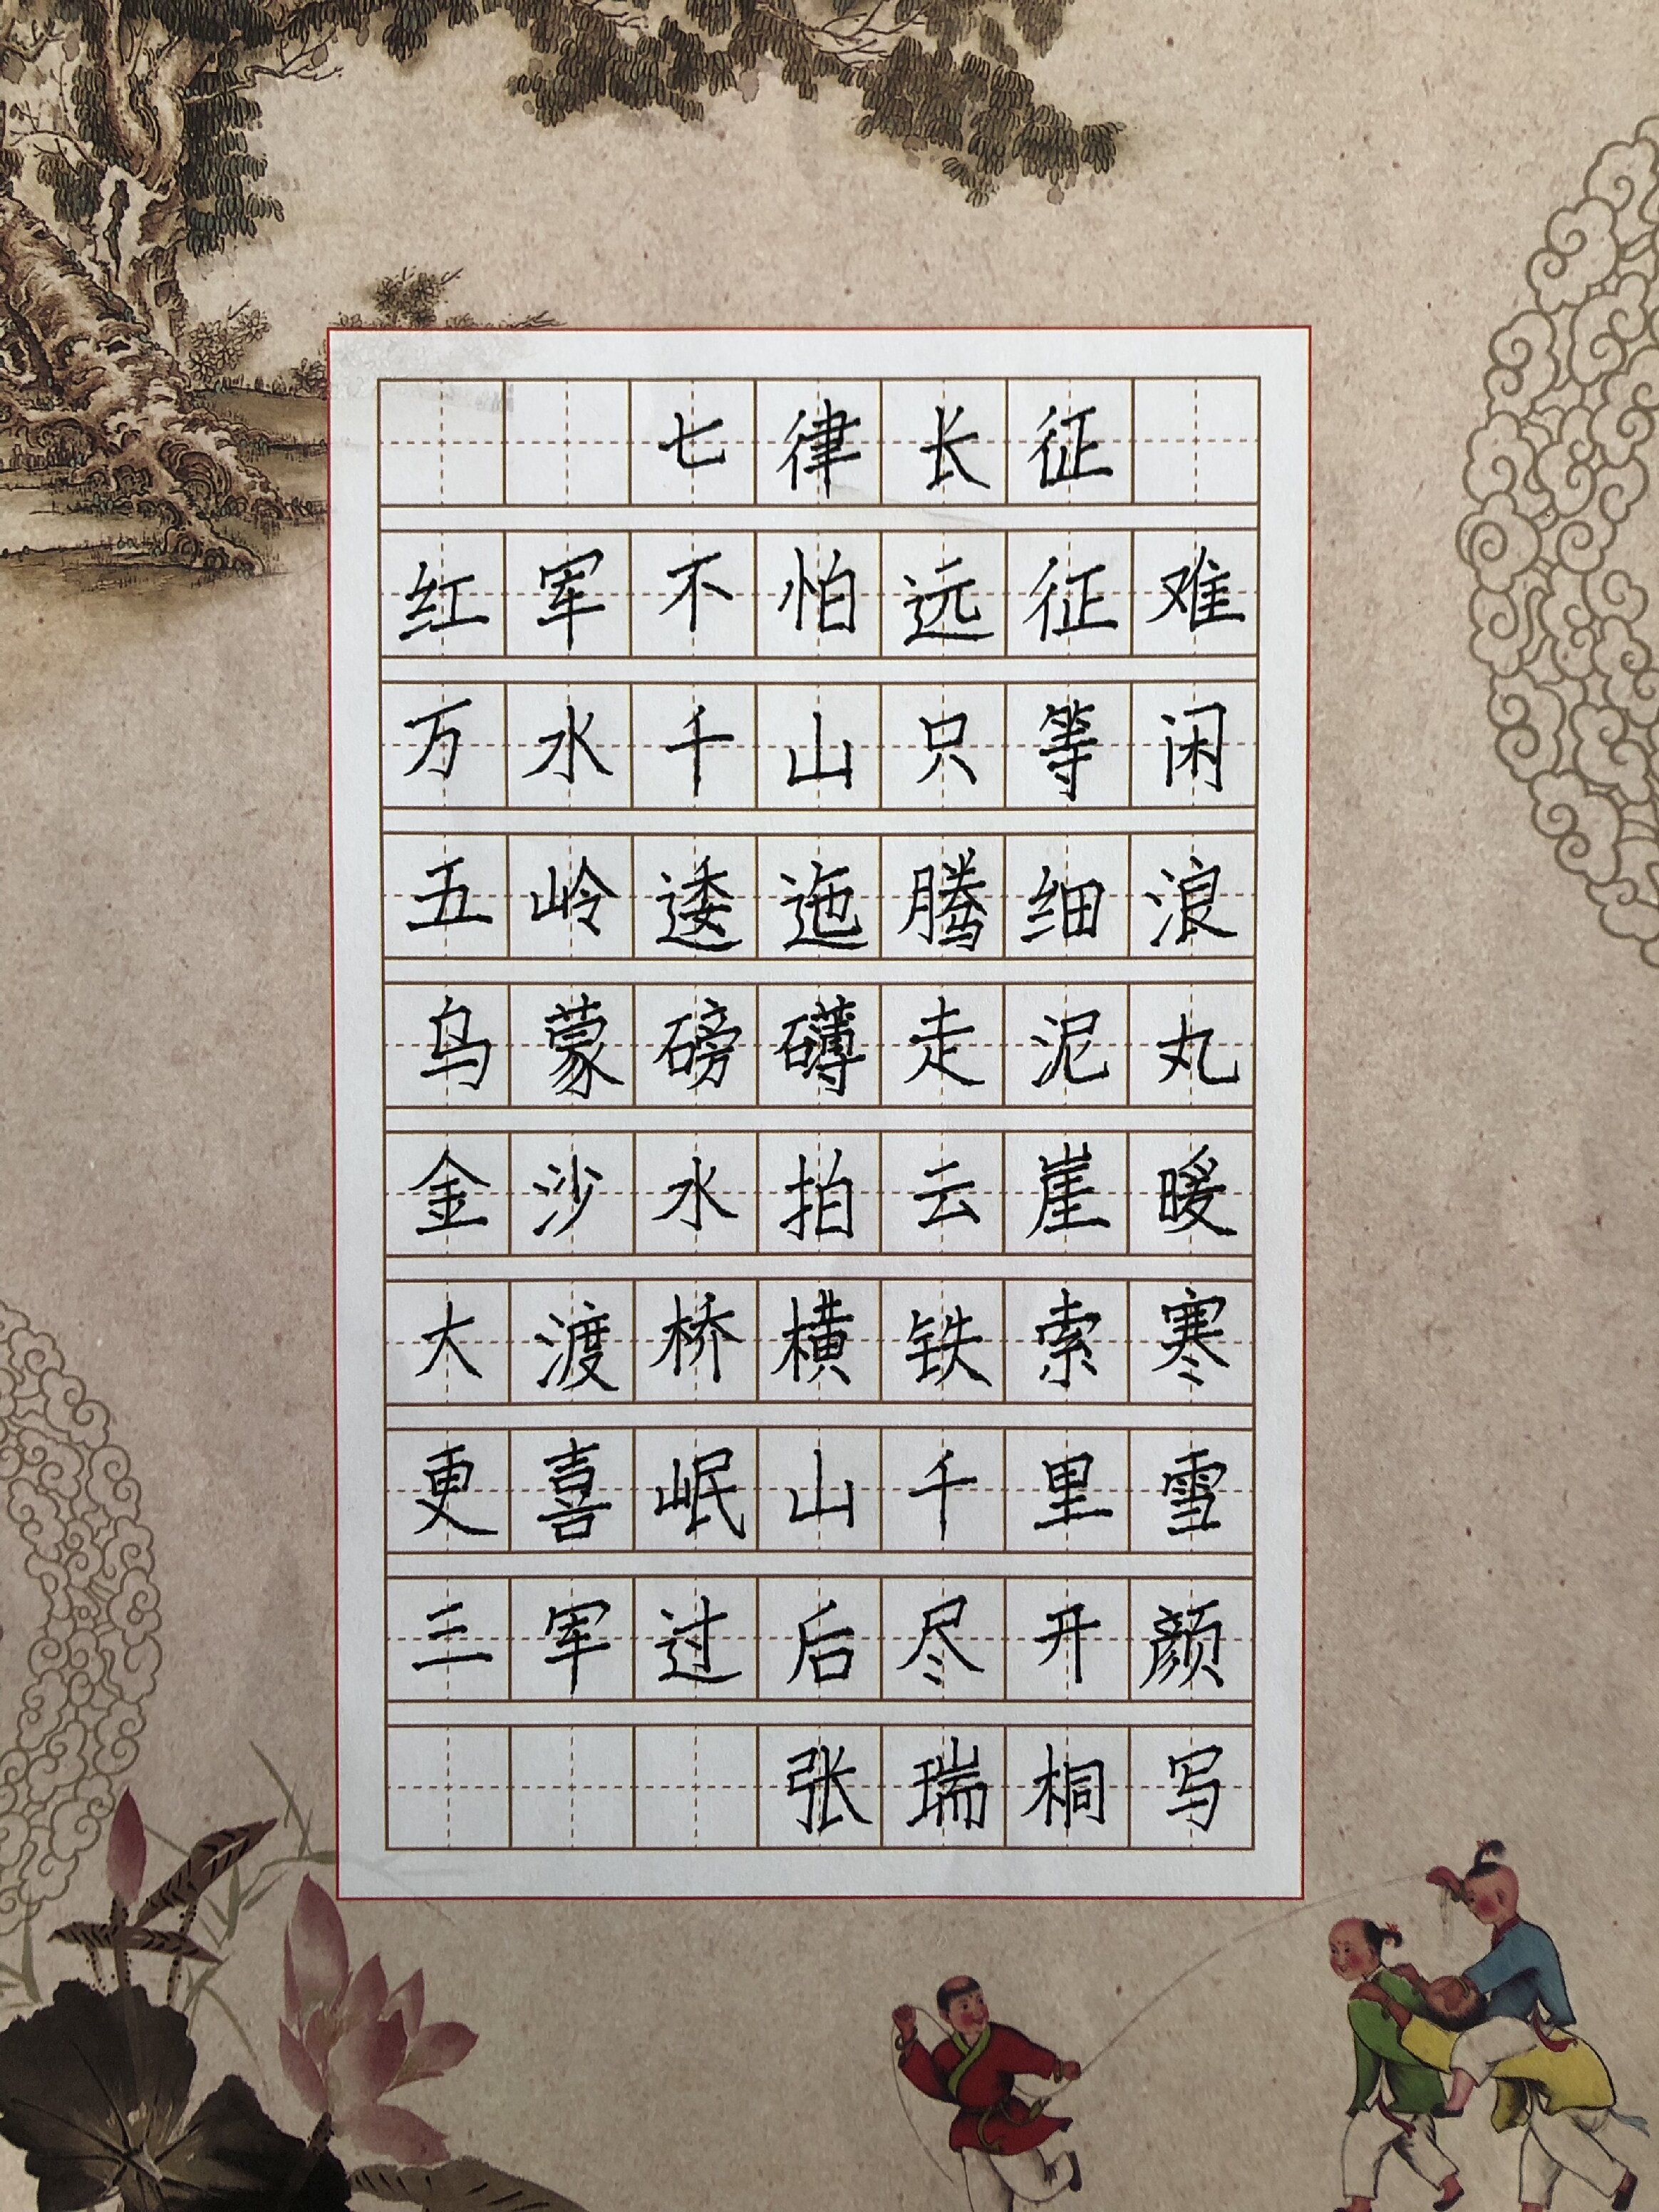 七律长征
红军不怕远征难
万水千山只等闲
五岭逶迤腾细浪
乌蒙磅礴走泥丸
金沙水拍云崖暖
大渡桥横铁索寒
更喜岷山千里雪
三军过后尽开颜
张瑞桐写